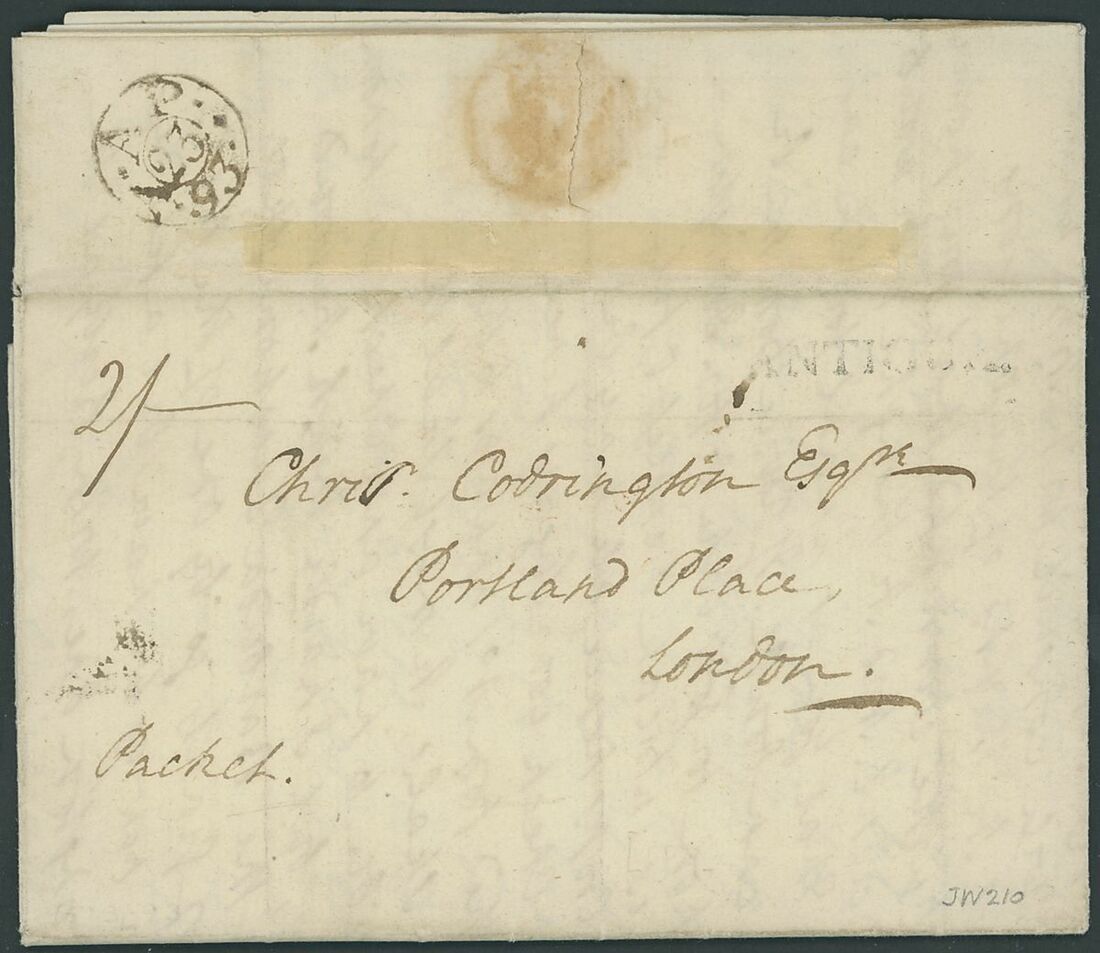 A P
23
93
2/
Chris. Codrington Esqre
Portland Place,
London.
Packet.
JW210